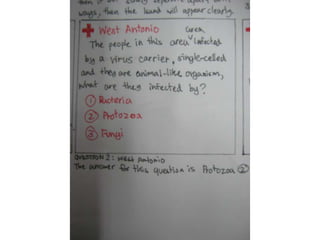 ways, then the band will appear clearly.
West Antonio area
The people in this area infected
by a virus carrier, single-celled
and they are animal-like organism,
what are they infected by?
① Bacteria
② Protozoa
③ Fungi
QUESTION 2: West Antonio
The answer for this question is Protozoa ②